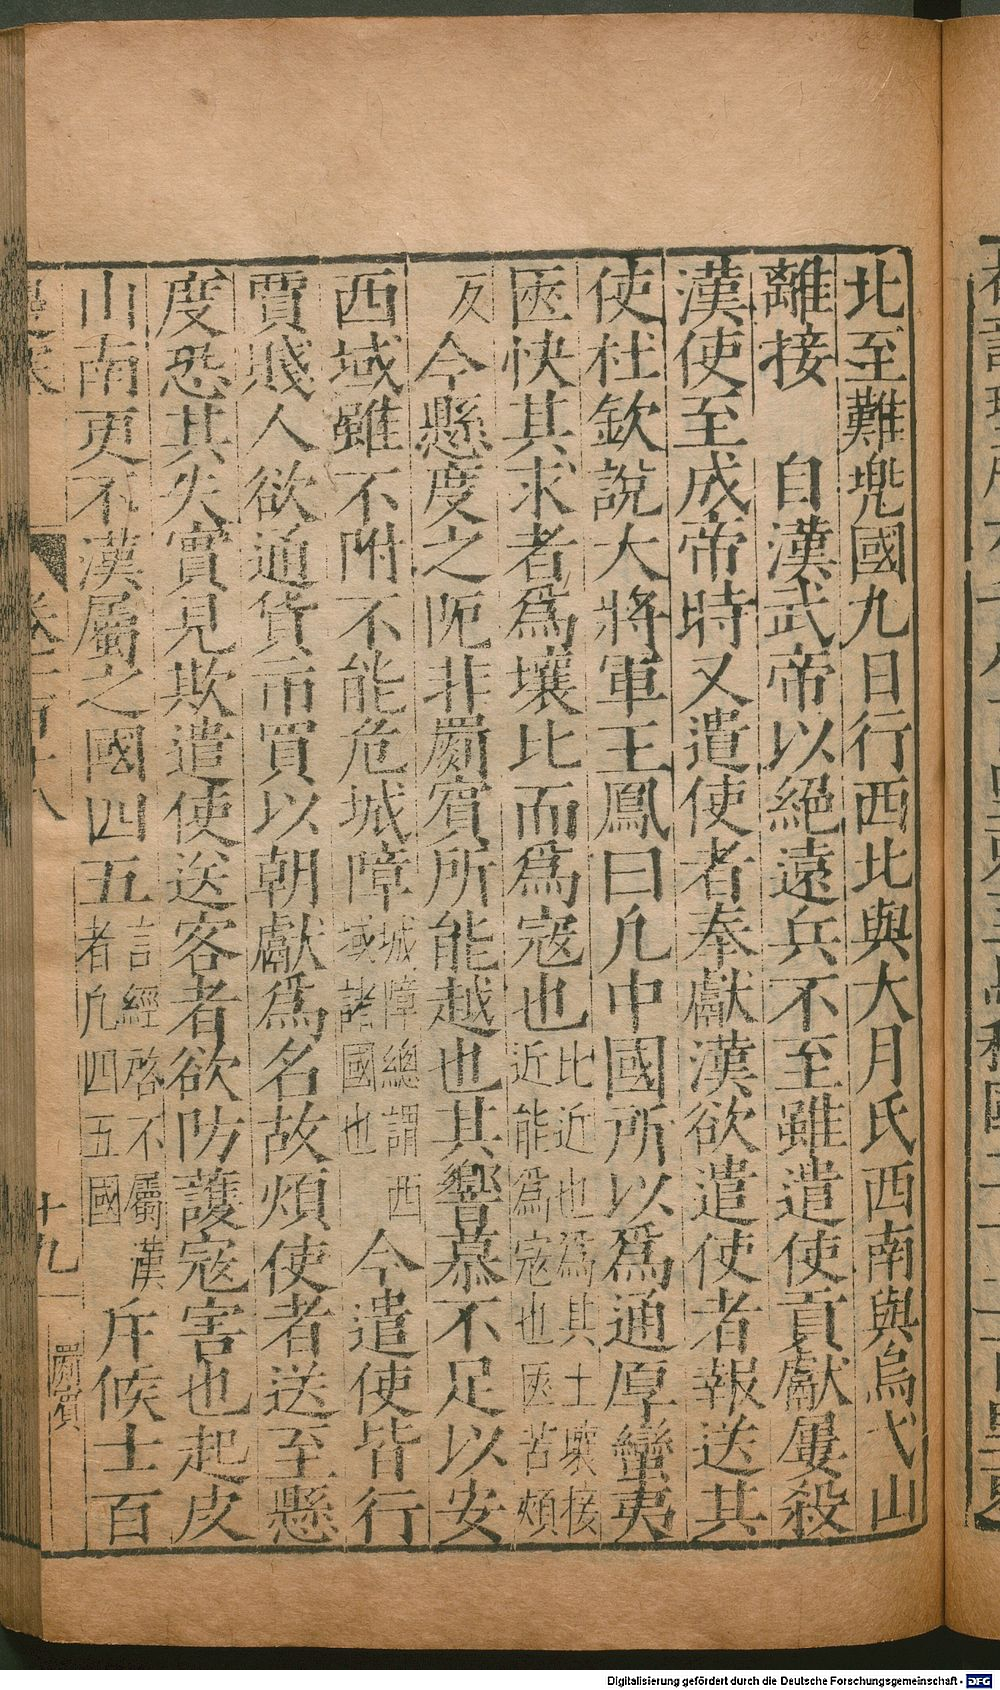 北至難兠國九日行西北與大月氏西南與烏弋山
離接　自漢武帝以絕遠兵不至雖遣使貢獻屢殺
漢使至成帝時又遣使者奉獻漢欲遣使者報送其
使杜欽說大將軍王鳳曰凡中國所以爲通厚蠻夷
匧快其求者爲壤比而爲寇也比近也爲其土壤接近能爲寇也匧苦頰
反今懸度之阨非罽賓所能越也其響慕不足以安
西域雖不附不能危城障城障總謂西域諸國也今遣使皆行
賈賤人欲通貨市買以朝獻爲名故煩使者送至懸
度恐其失實見欺遣使送客者欲防護寇害也起皮
山南更不漢屬之國四五言經啓不屬漢者凡四五國斥候士百
十九
罽賓
Digitalisierung gefördert durch die Deutsche Forschungsgemeinschaft - DFG